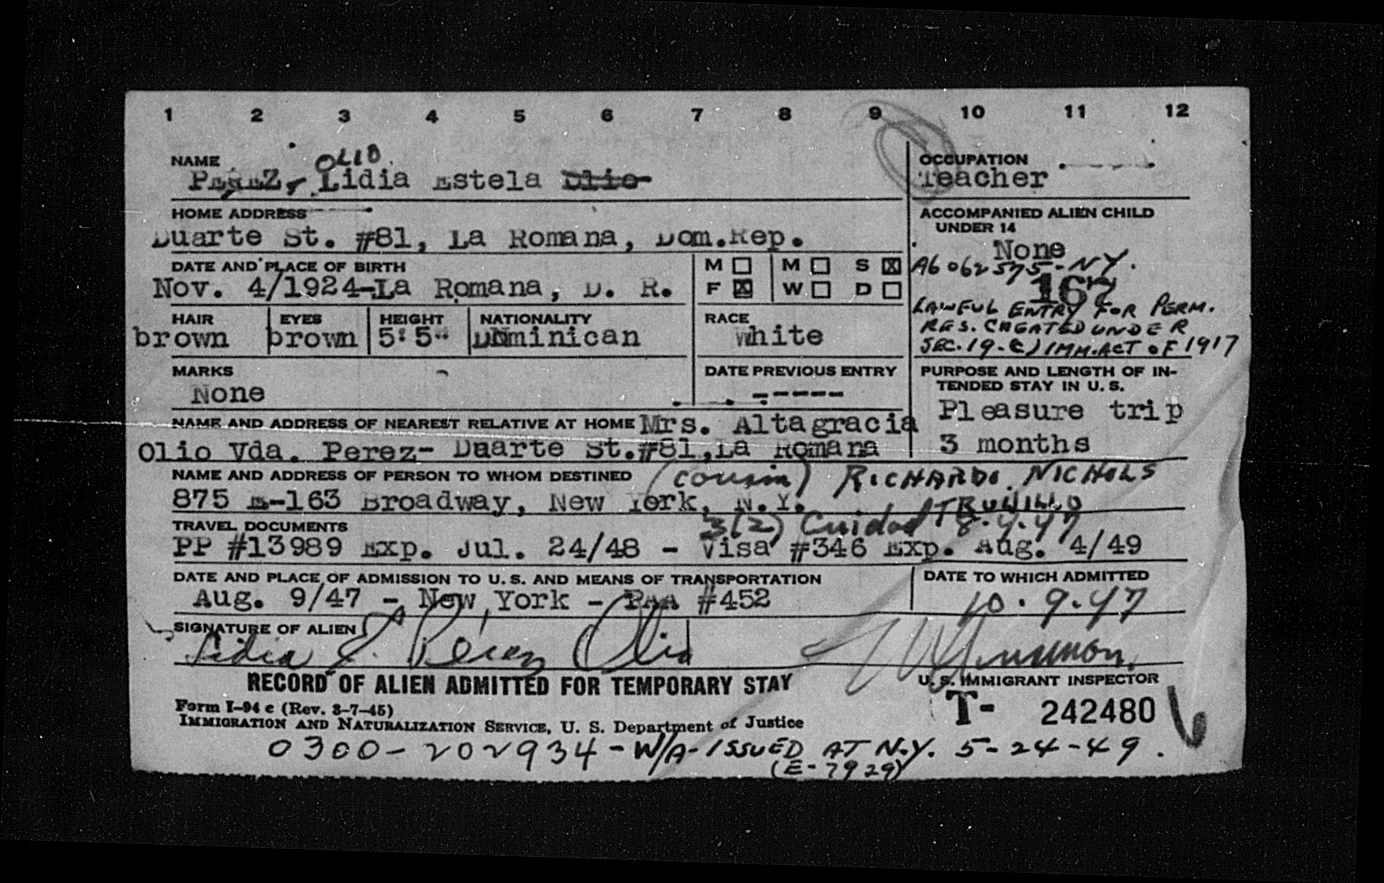 1 2 3 4 5 6 7 8 9 10 11 12
NAME
OLIO
PEREZ, Lidia Estela Olio
OCCUPATION
Teacher
HOME ADDRESS
Duarte St. #81, La Romana, Dom.Rep.
ACCOMPANIED ALIEN CHILD
UNDER 14
None
DATE AND PLACE OF BIRTH
Nov. 4/1924-La Romana, D. R.
M M S X
F X W D
A6 062 575-NY.
167
LAWFUL ENTRY FOR PERM.
RES. CREATED UNDER
SEC. 19-(c) IMM. ACT OF 1917
HAIR EYES HEIGHT NATIONALITY RACE
brown brown 5'5" Dominican White
MARKS
None
DATE PREVIOUS ENTRY
------
PURPOSE AND LENGTH OF IN-
TENDED STAY IN U. S.
Pleasure trip
3 months
NAME AND ADDRESS OF NEAREST RELATIVE AT HOME Mrs. Altagracia
Olio Vda. Perez- Duarte St.#81,La Romana
NAME AND ADDRESS OF PERSON TO WHOM DESTINED (cousin) RICHARDO NICHOLS
875 E-163 Broadway, New York, N.Y.
3(2) Cuidad TRUJILLO
8.4.47
TRAVEL DOCUMENTS
PP #13989 Exp. Jul. 24/48 - Visa #346 Exp. Aug. 4/49
DATE AND PLACE OF ADMISSION TO U. S. AND MEANS OF TRANSPORTATION
Aug. 9/47 - New York - PAA #452
DATE TO WHICH ADMITTED
10.9.47
SIGNATURE OF ALIEN
Lidia E. Pérez Olio
RECORD OF ALIEN ADMITTED FOR TEMPORARY STAY
U. S. IMMIGRANT INSPECTOR
Form I-94 c (Rev. 3-7-45)
IMMIGRATION AND NATURALIZATION SERVICE, U. S. Department of Justice
T- 242480
0300-202934-W/A-ISSUED AT N.Y. 5-24-49.
(E-7929)